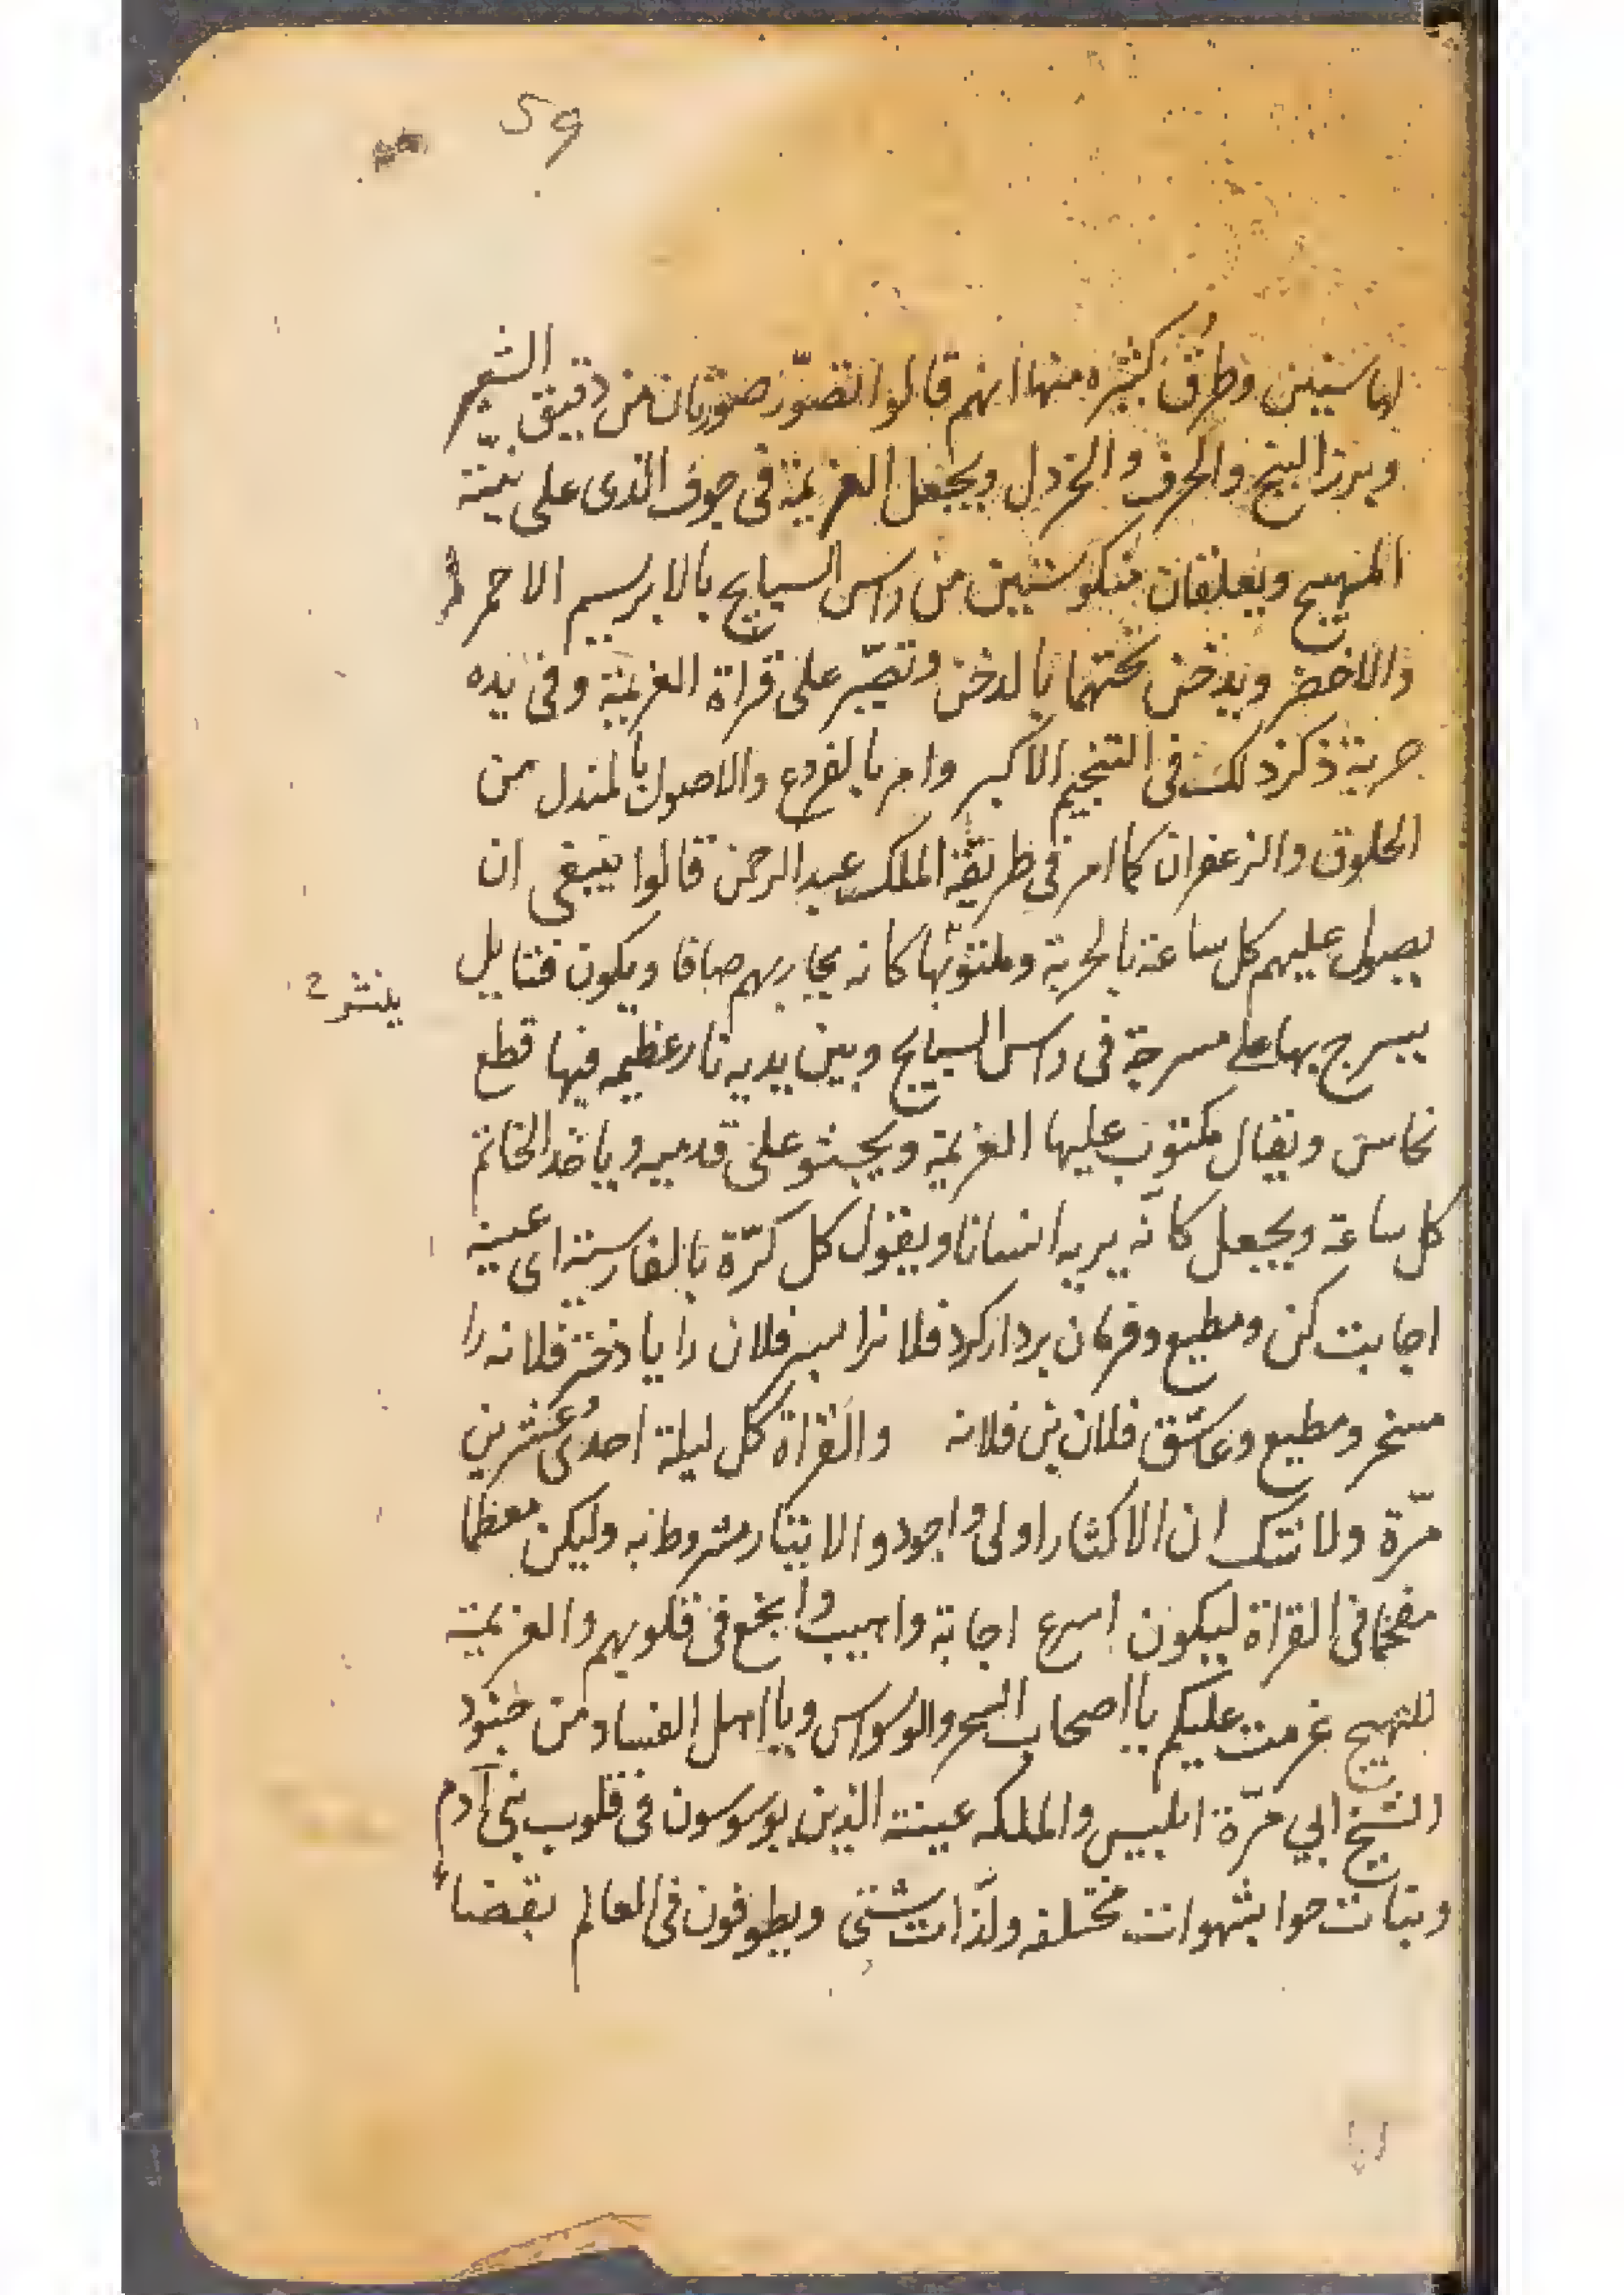 59
لها سنين وطرق كثيره منها انهم قالوا تصوّر صورتان من دقيق الشعير
وبرز البنج والحرف والخردل ويجعل العزيمة فى جوف الذى على نيّته
المنهيج ويعلقان منكوستين من راس السبايج بالابرسيم الاحمر
والاخضر ويدخن تحتهما بالدخن وتصيّر على قراة العزيمة وفى يده
حربة ذكر ذلك فى التنجيم الاكبر وامر بالفروع والاصول بالمندل من
الخلوق والزعفران كما امر فى طريقة الملك عبد الرحمن قالوا ينبغى ان
يصول عليهم كل ساعة بالحربة كانه يحاربهم ويكون فتايل
ينشر
يسرج بها على مسرجة فى راس السبايج وبين يديه نار عظيمه فيها قطع
نحاس ونعال مكتوب عليها العزيمة ويجثو على قدميه وياخد الخاتم
كل ساعة ويجعل كانّه يريه انسانا ويقول كل كرّة بالفارسية اى عينه
اجابت كن ومطيع وفرمان بردار كرد فلانرا پسر فلان را يا دختر فلانه را
مسخر ومطيع وعاشق فلان بن فلانه والقراة كل ليلة احدى عشرين
مرّة ولا نشك ان الاكثار اولى واجود والايتار مشروط به وليكن معظما
مفخما فى القراة ليكون اسرع اجابة واهيب وانجع فى قلوبهم والعزيمة
للتهيج عزمت عليكم يا اصحاب السحر والوسواس ويا اهل الفساد من جنود
الشيخ ابي مرّة ابليس والملكه عينة الذين يوسوسون فى قلوب بنى آدم
وبنات حوا بشهوات مختلفه ولذّات شتى ويطوفون فى العالم بقضاء